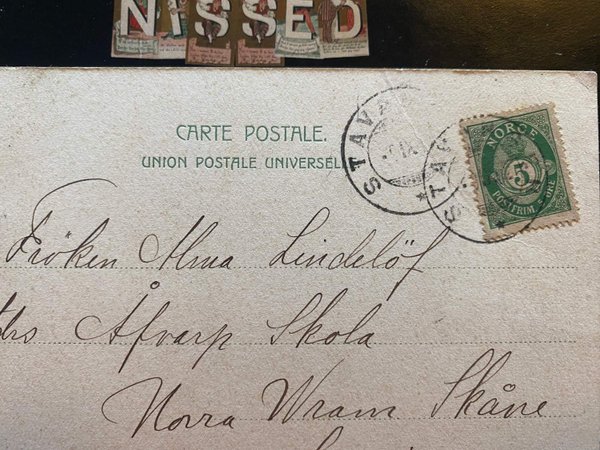 NISSED
CARTE POSTALE.
UNION POSTALE UNIVERSELL
STAVA
STA
NORGE
5
POSTFRIM
Fröken Alma Lindelöf
Åfvarp Skola
Norra Wram Skåne